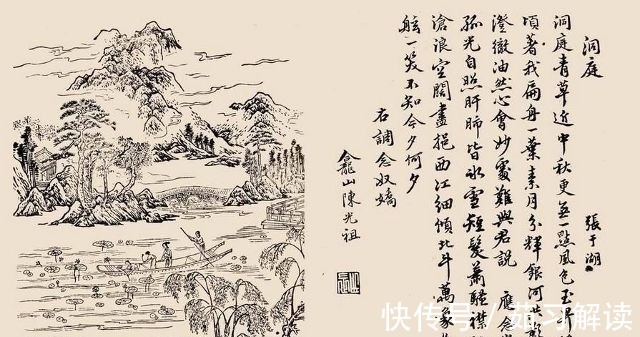 洞庭
張于湖
洞庭青草近中秋更無一點風色玉界
頃著我扁舟一葉素月分輝銀河共
澄徹油然心會妙處難與君說 應念
孤光自照肝肺皆冰雪短髮蕭騷襟
滄浪空闊盡挹西江細傾北斗萬象
舷一笑不知今夕何夕
右調念奴嬌
龕山陳光祖
快传号/茹习解读